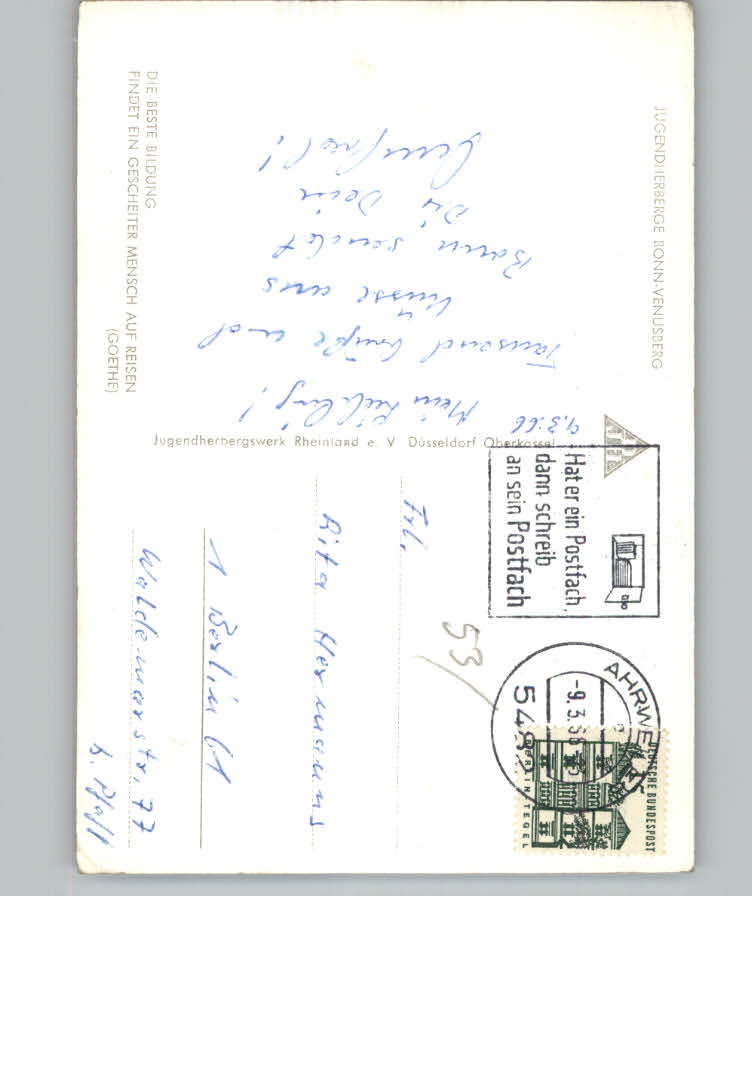 JUGENDHERBERGE BONN-VENUSBERG
9.3.66
Mein Liebling!
Tausend Grüße und
Küsse aus
Bonn sendet
Dir Dein
DIE BESTE BILDUNG
FINDET EIN GESCHEITER MENSCH AUF REISEN
(GOETHE)
Jugendherbergswerk Rheinland e. V Düsseldorf Oberkassel
Hat er ein Postfach,
dann schreib
an sein Postfach
AHRWEILER
-9.3.66
5482
DEUTSCHE BUNDESPOST
BERLIN-TEGEL
53
Frl.
Rita Hermanns
1 Berlin 61
Waldemarstr. 77
b. Pfaff